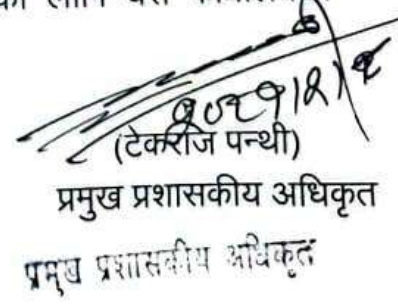 लागि यस
(टेकराज पन्थी)
प्रमुख प्रशासकीय अधिकृत
प्रमुख प्रशासकीय अधिकृत